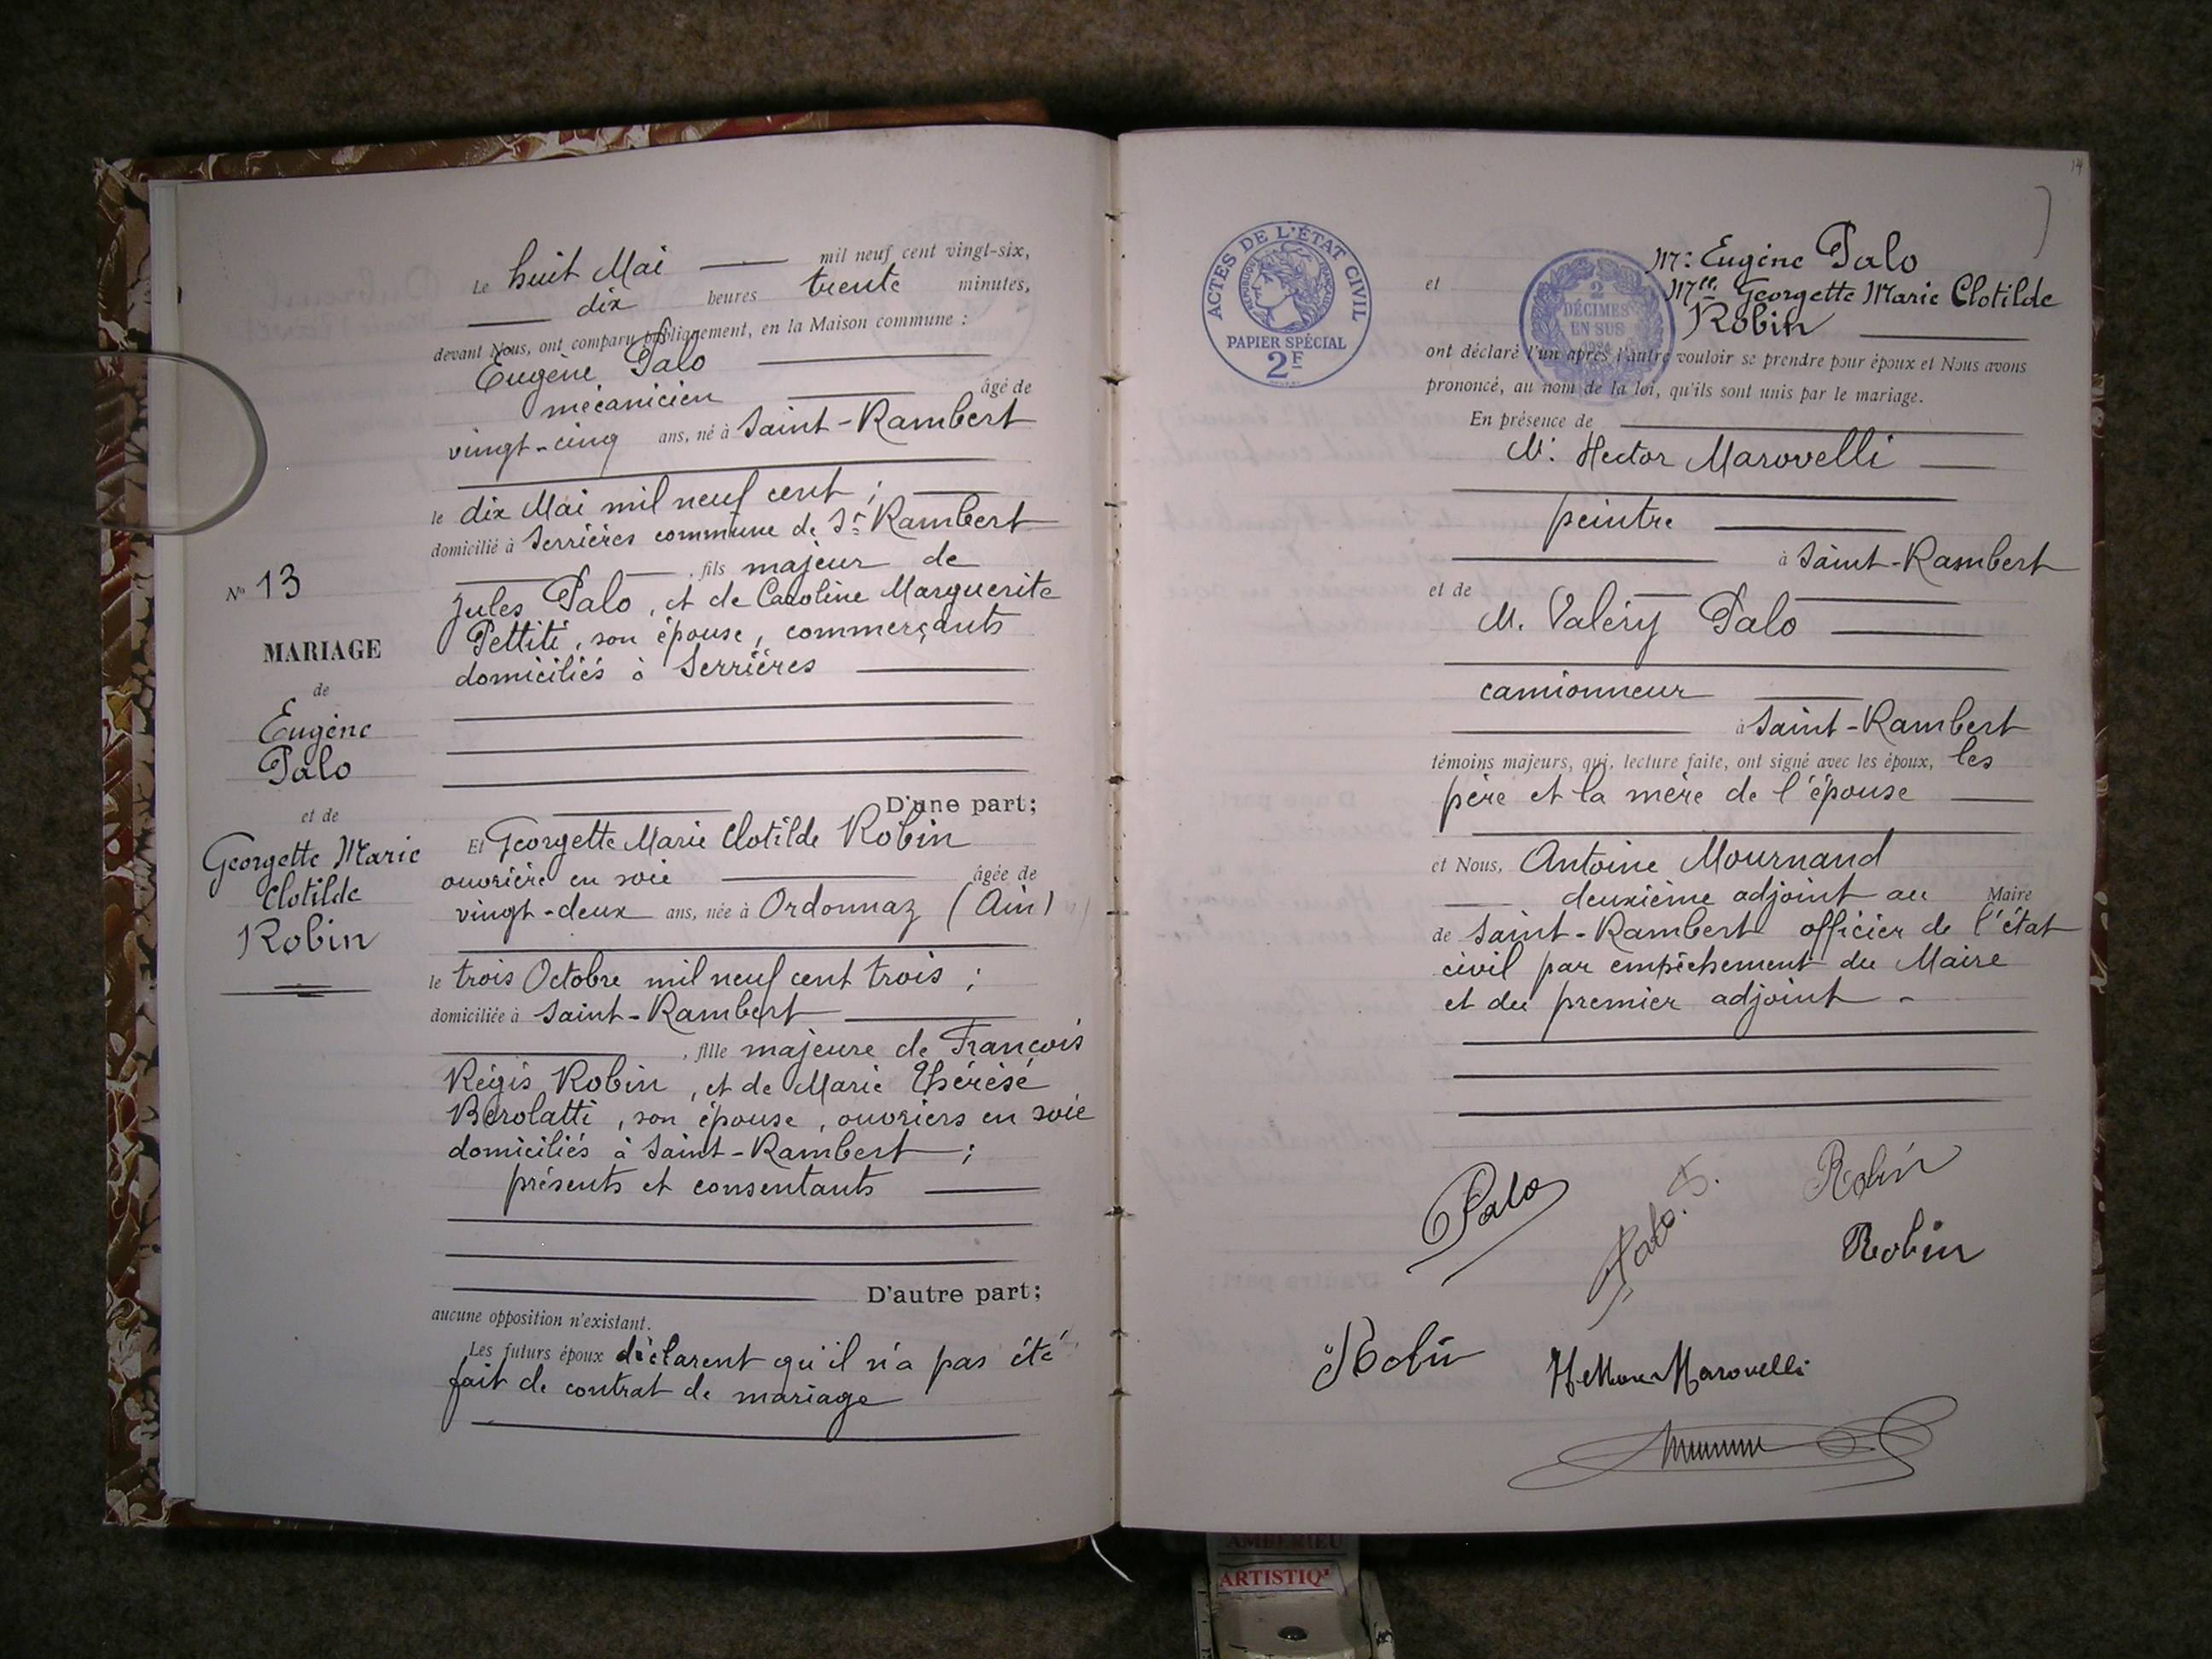 Le huit Mai mil neuf cent vingt-six,
dix heures trente minutes,
devant Nous, ont comparu publiquement, en la Maison commune :
Eugène Palo
mécanicien âgé de
vingt-cinq ans, né à Saint-Rambert
le dix Mai mil neuf cent ;
domicilié à Serrières commune de St Rambert
, fils majeur de
Jules Palo, et de Caroline Marguerite
Pettiti, son épouse, commerçants
domiciliés à Serrières
D'une part;
Et Georgette Marie Clotilde Robin
ouvrière en soie âgée de
vingt-deux ans, née à Ordonnaz (Ain)
le trois Octobre mil neuf cent trois ;
domiciliée à Saint-Rambert
, fille majeure de François
Régis Robin, et de Marie Thérèse
Berolatti, son épouse, ouvriers en soie
domiciliés à Saint-Rambert ;
présents et consentants
D'autre part;
aucune opposition n'existant.
Les futurs époux déclarent qu'il n'a pas été
fait de contrat de mariage
No 13
MARIAGE
de
Eugène
Palo
et de
Georgette Marie
Clotilde
Robin
14
ACTES DE L'ÉTAT CIVIL
RÉPUBLIQUE FRANÇAISE
PAPIER SPÉCIAL
2F
2
DÉCIMES
EN SUS
1924
Mr Eugène Palo
et Mlle Georgette Marie Clotilde
Robin
ont déclaré l'un après l'autre vouloir se prendre pour époux et Nous avons
prononcé, au nom de la loi, qu'ils sont unis par le mariage.
En présence de
Mr Hector Marovelli
peintre
à Saint-Rambert
et de
M. Valéry Palo
camionneur
à Saint-Rambert
témoins majeurs, qui, lecture faite, ont signé avec les époux, les
père et la mère de l'épouse
et Nous, Antoine Mournand
deuxième adjoint au Maire
de Saint-Rambert officier de l'état
civil par empêchement du Maire
et du premier adjoint -
Palo
Palo.
Robin
Robin
Robin
Marovelli
AMBERIEU
ARTISTIQ